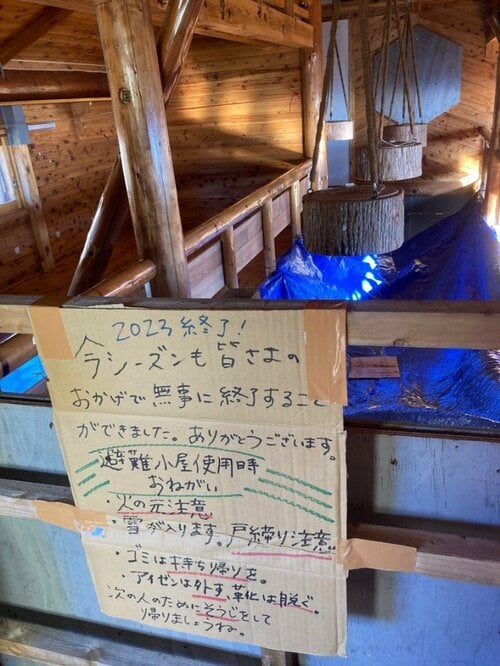 2023終了！
今シーズンも皆さまの
おかげで無事に終了すること
ができました。ありがとうございます。
避難小屋使用時
おねがい
・火の元注意
・雪が入ります。戸締り注意
・ゴミは持ち帰りを。
・アイゼンは外す、靴は脱ぐ。
次の人のためにそうじをして
帰りましょうね。